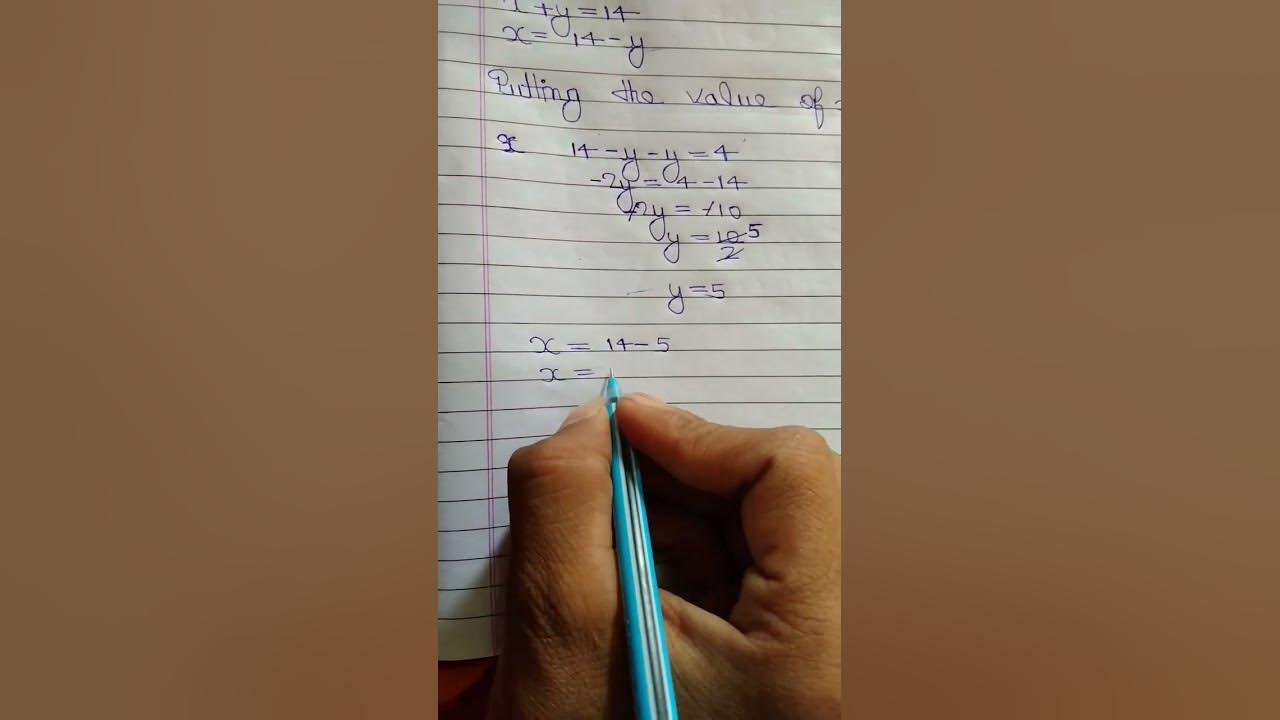 x+y=14
x= 14-y
Putting the value of
x 14-y-y=4
-2y= 4-14
-2y = -10
y = 10/2 5
y=5
x = 14-5
x =